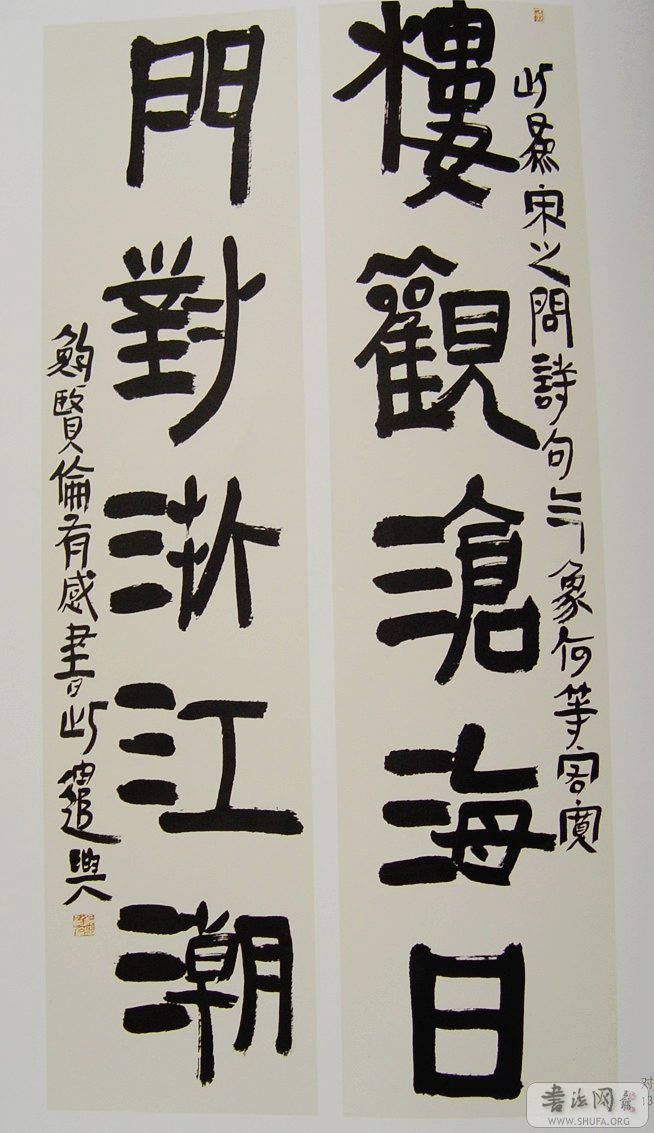 此爲宋之問詩句气象何等宏寬
樓觀滄海日
門對浙江潮
鮑賢倫有感書此遣興
对
13
書法网
WWW.SHUFA.ORG